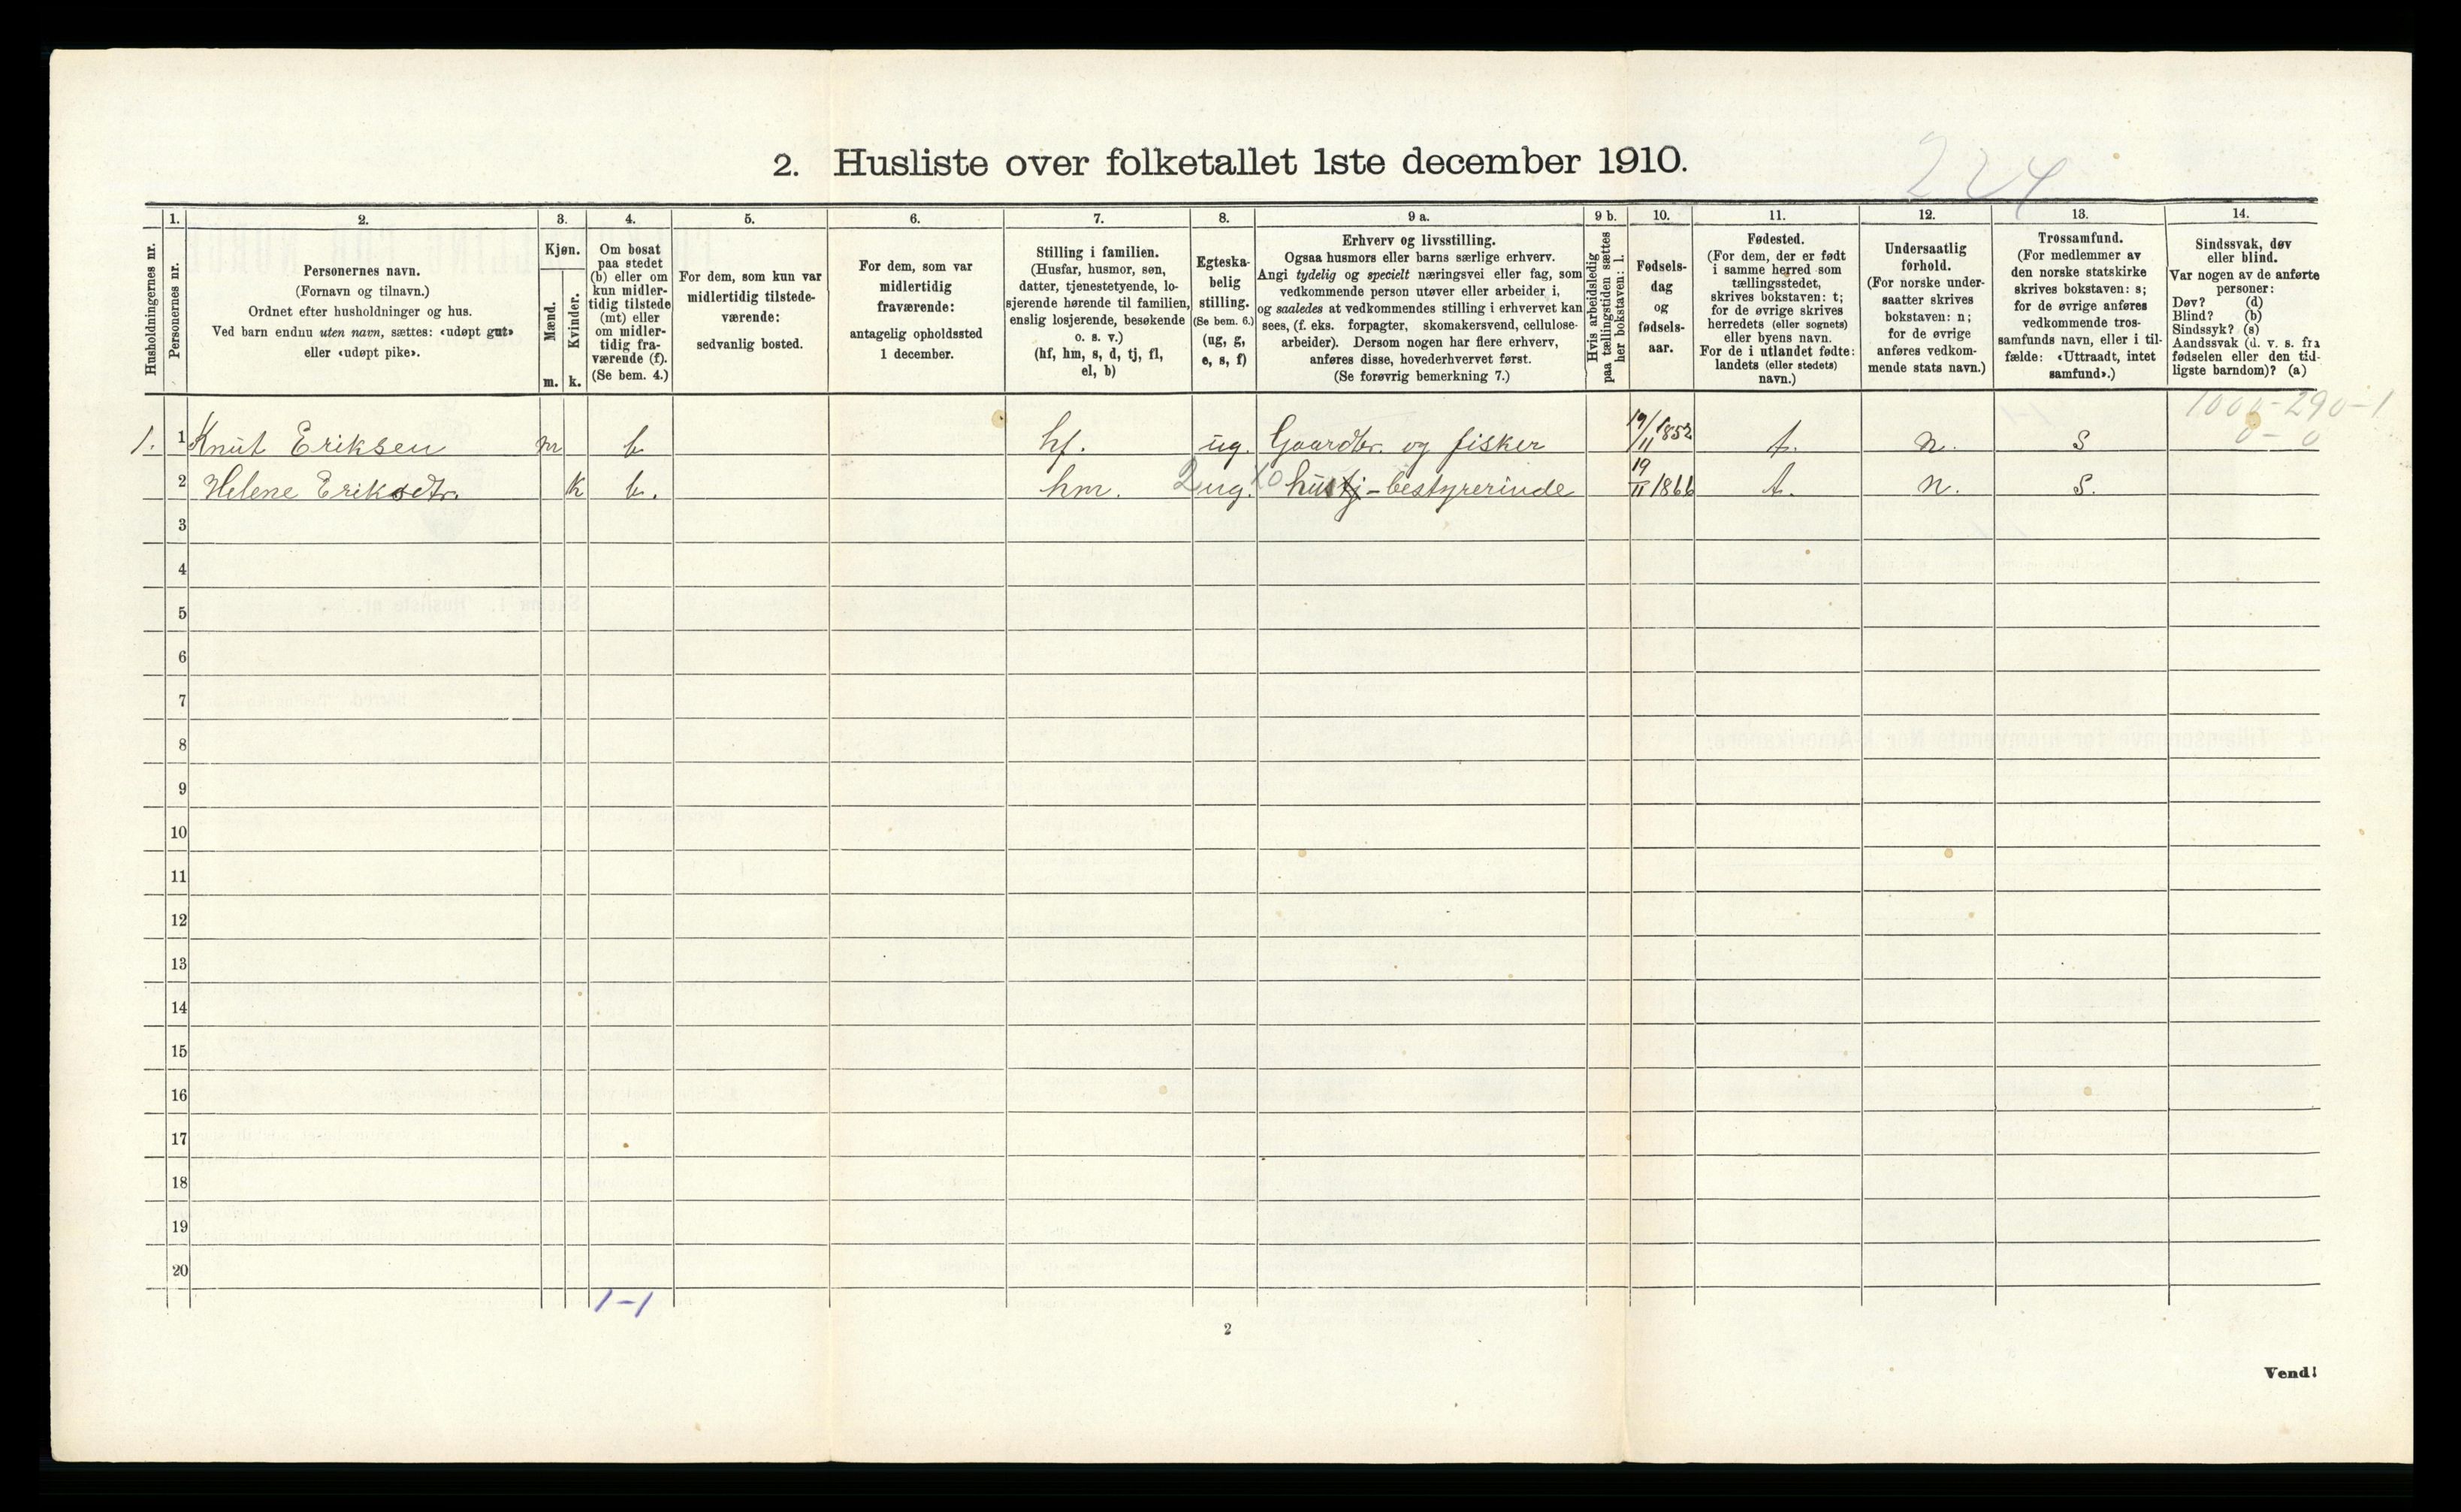 224
2. Husliste over folketallet 1ste december 1910.
1. 2. 3. 4. 5. 6. 7. 8. 9 a. 9 b. 10. 11. 12. 13. 14.
Husholdningernes nr.
Personernes nr.
Personernes navn.
(Fornavn og tilnavn.)
Ordnet efter husholdninger og hus.
Ved barn endnu uten navn, sættes: «udøpt gut»
eller «udøpt pike».
Kjøn.
Mænd.
m.
Kvinder.
k.
Om bosat
paa stedet
(b) eller om
kun midler-
tidig tilstede
(mt) eller
om midler-
tidig fra-
værende (f).
(Se bem. 4.)
For dem, som kun var
midlertidig tilstede-
værende:
sedvanlig bosted.
For dem, som var
midlertidig
fraværende:
antagelig opholdssted
1 december.
Stilling i familien.
(Husfar, husmor, søn,
datter, tjenestetyende, lo-
sjerende hørende til familien,
enslig losjerende, besøkende
o. s. v.)
(hf, hm, s, d, tj, fl,
el, b)
Egteska-
belig
stilling.
(Se bem. 6.)
(ug, g,
e, s, f)
Erhverv og livsstilling.
Ogsaa husmors eller barns særlige erhverv.
Angi tydelig og specielt næringsvei eller fag, som
vedkommende person utøver eller arbeider i,
og saaledes at vedkommendes stilling i erhvervet kan
sees, (f. eks. forpagter, skomakersvend, cellulose-
arbeider). Dersom nogen har flere erhverv,
anføres disse, hovederhvervet først.
(Se forøvrig bemerkning 7.)
Hvis arbeidsledig
paa tællingstiden sættes
her bokstaven: l.
Fødsels-
dag
og
fødsels-
aar.
Fødested.
(For dem, der er født
i samme herred som
tællingsstedet,
skrives bokstaven: t;
for de øvrige skrives
herredets (eller sognets)
eller byens navn.
For de i utlandet fødte:
landets (eller stedets)
navn.)
Undersaatlig
forhold.
(For norske under-
saatter skrives
bokstaven: n;
for de øvrige
anføres vedkom-
mende stats navn.)
Trossamfund.
(For medlemmer av
den norske statskirke
skrives bokstaven: s;
for de øvrige anføres
vedkommende tros-
samfunds navn, eller i til-
fælde: «Uttraadt, intet
samfund».)
Sindssvak, døv
eller blind.
Var nogen av de anførte
personer:
Døv? (d)
Blind? (b)
Sindssyk? (s)
Aandssvak (d. v. s. fra
fødselen eller den tid-
ligste barndom)? (a)
1000-290-1
0-0
1. 1 Knut Eriksen m b hf. ug. Gaardbr. og fisker 19/11 1852 t. n. S
2 Helene Eriksdtr. k b. hm. ug. hus-bestyrerinde 19/11 1866 t. n. S.
3
4
5
6
7
8
9
10
11
12
13
14
15
16
17
18
19
20
1-1
2
Vend!